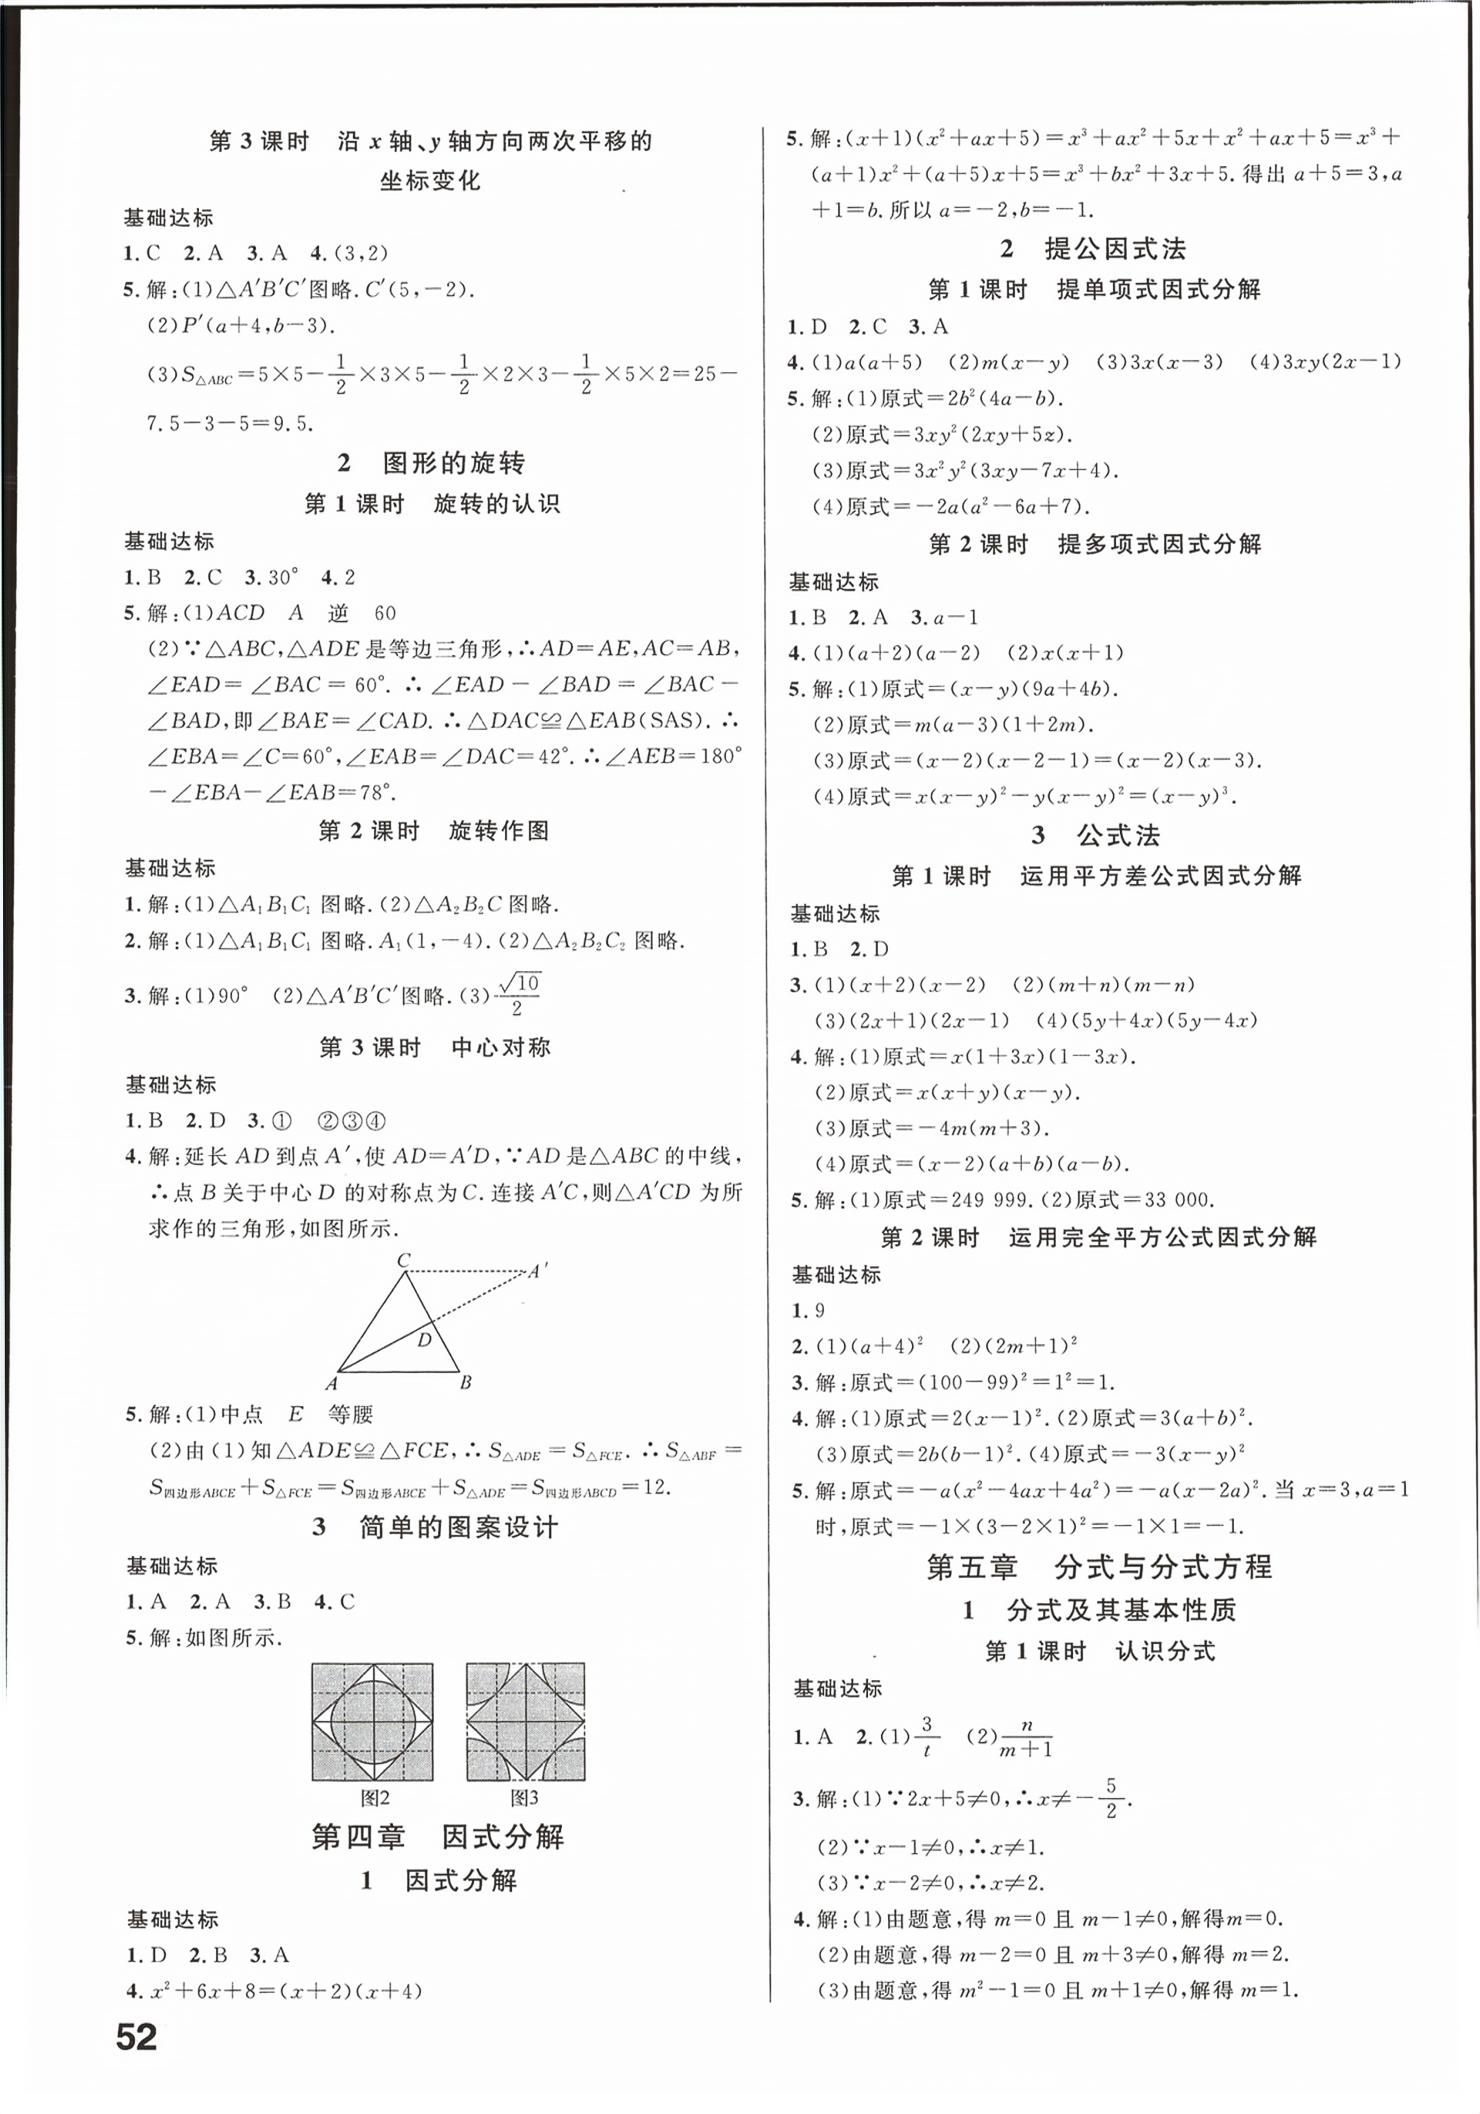 第 3 课时　沿 x 轴、y 轴方向两次平移的
坐标变化
基础达标
1. C　2. A　3. A　4. (3,2)
5. 解:(1)△A′B′C′图略. C′(5,−2).
(2)P′(a+4,b−3).
(3)S△ABC=5×5−1/2×3×5−1/2×2×3−1/2×5×2=25−
7.5−3−5=9.5.
2　图形的旋转
第 1 课时　旋转的认识
基础达标
1. B　2. C　3. 30°　4. 2
5. 解:(1)ACD　A　逆　60
(2)∵△ABC,△ADE 是等边三角形,∴AD=AE,AC=AB,
∠EAD=∠BAC=60°. ∴∠EAD−∠BAD=∠BAC−
∠BAD,即∠BAE=∠CAD. ∴△DAC≌△EAB(SAS). ∴
∠EBA=∠C=60°,∠EAB=∠DAC=42°. ∴∠AEB=180°
−∠EBA−∠EAB=78°.
第 2 课时　旋转作图
基础达标
1. 解:(1)△A₁B₁C₁ 图略. (2)△A₂B₂C 图略.
2. 解:(1)△A₁B₁C₁ 图略. A₁(1,−4). (2)△A₂B₂C₂ 图略.
3. 解:(1)90°　(2)△A′B′C′图略. (3)√10/2
第 3 课时　中心对称
基础达标
1. B　2. D　3. ①　②③④
4. 解:延长 AD 到点 A′,使 AD=A′D,∵AD 是△ABC 的中线,
∴点 B 关于中心 D 的对称点为 C. 连接 A′C,则△A′CD 为所
求作的三角形,如图所示.
C
A′
D
A
B
5. 解:(1)中点　E　等腰
(2)由(1)知△ADE≌△FCE,∴S△ADE=S△FCE. ∴S△ABF=
S四边形ABCE+S△FCE=S四边形ABCE+S△ADE=S四边形ABCD=12.
3　简单的图案设计
基础达标
1. A　2. A　3. B　4. C
5. 解:如图所示.
图2　图3
第四章　因式分解
1　因式分解
基础达标
1. D　2. B　3. A
4. x²+6x+8=(x+2)(x+4)
52
5. 解:(x+1)(x²+ax+5)=x³+ax²+5x+x²+ax+5=x³+
(a+1)x²+(a+5)x+5=x³+bx²+3x+5. 得出 a+5=3,a
+1=b. 所以 a=−2,b=−1.
2　提公因式法
第 1 课时　提单项式因式分解
1. D　2. C　3. A
4. (1)a(a+5)　(2)m(x−y)　(3)3x(x−3)　(4)3xy(2x−1)
5. 解:(1)原式=2b²(4a−b).
(2)原式=3xy²(2xy+5z).
(3)原式=3x²y²(3xy−7x+4).
(4)原式=−2a(a²−6a+7).
第 2 课时　提多项式因式分解
基础达标
1. B　2. A　3. a−1
4. (1)(a+2)(a−2)　(2)x(x+1)
5. 解:(1)原式=(x−y)(9a+4b).
(2)原式=m(a−3)(1+2m).
(3)原式=(x−2)(x−2−1)=(x−2)(x−3).
(4)原式=x(x−y)²−y(x−y)²=(x−y)³.
3　公式法
第 1 课时　运用平方差公式因式分解
基础达标
1. B　2. D
3. (1)(x+2)(x−2)　(2)(m+n)(m−n)
(3)(2x+1)(2x−1)　(4)(5y+4x)(5y−4x)
4. 解:(1)原式=x(1+3x)(1−3x).
(2)原式=x(x+y)(x−y).
(3)原式=−4m(m+3).
(4)原式=(x−2)(a+b)(a−b).
5. 解:(1)原式=249 999. (2)原式=33 000.
第 2 课时　运用完全平方公式因式分解
基础达标
1. 9
2. (1)(a+4)²　(2)(2m+1)²
3. 解:原式=(100−99)²=1²=1.
4. 解:(1)原式=2(x−1)². (2)原式=3(a+b)².
(3)原式=2b(b−1)². (4)原式=−3(x−y)²
5. 解:原式=−a(x²−4ax+4a²)=−a(x−2a)². 当 x=3,a=1
时,原式=−1×(3−2×1)²=−1×1=−1.
第五章　分式与分式方程
1　分式及其基本性质
第 1 课时　认识分式
基础达标
1. A　2. (1)3/t　(2)n/(m+1)
3. 解:(1)∵2x+5≠0,∴x≠−5/2.
(2)∵x−1≠0,∴x≠1.
(3)∵x−2≠0,∴x≠2.
4. 解:(1)由题意,得 m=0 且 m−1≠0,解得m=0.
(2)由题意,得 m−2=0 且 m+3≠0,解得 m=2.
(3)由题意,得 m²−1=0 且 m+1≠0,解得 m=1.